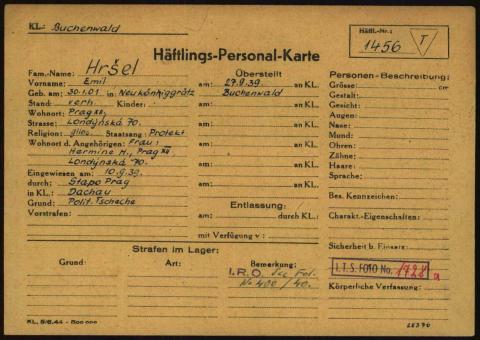 KL.: Buchenwald
Häftl.-Nr.:
1456
T
Häftlings-Personal-Karte
Fam.-Name: Hršel
Vorname: Emil
Geb. am: 30.1.01 in: Neukönkiggrätz
Stand: verh. Kinder:
Wohnort: Prag XII,
Strasse: Londýnská 70.
Religion: glbs. Staatsang.: Protekt
Wohnort d. Angehörigen: Frau,
Hermine H., Prag XII
Londýnská 70.
Eingewiesen am: 10.9.39.
durch: Stapo Prag
in KL.: Dachau
Grund: Polit. Tscheche
Vorstrafen:
Überstellt
am: 27.9.39 an KL.
Buchenwald
am: an KL.
am: an KL.
am: an KL.
am: an KL.
am: an KL.
Entlassung:
am: durch KL.:
mit Verfügung v.:
Personen-Beschreibung:
Grösse: cm
Gestalt:
Gesicht:
Augen:
Nase:
Mund:
Ohren:
Zähne:
Haare:
Sprache:
Bes. Kennzeichen:
Charakt.-Eigenschaften:
Sicherheit b. Einsatz:
I.T.S. FOTO No. 1728 a
Körperliche Verfassung:
Strafen im Lager:
Grund: Art: Bemerkung:
I.R.O. Fol.
No 400/40.
KL. 5/6.44 - 500 000